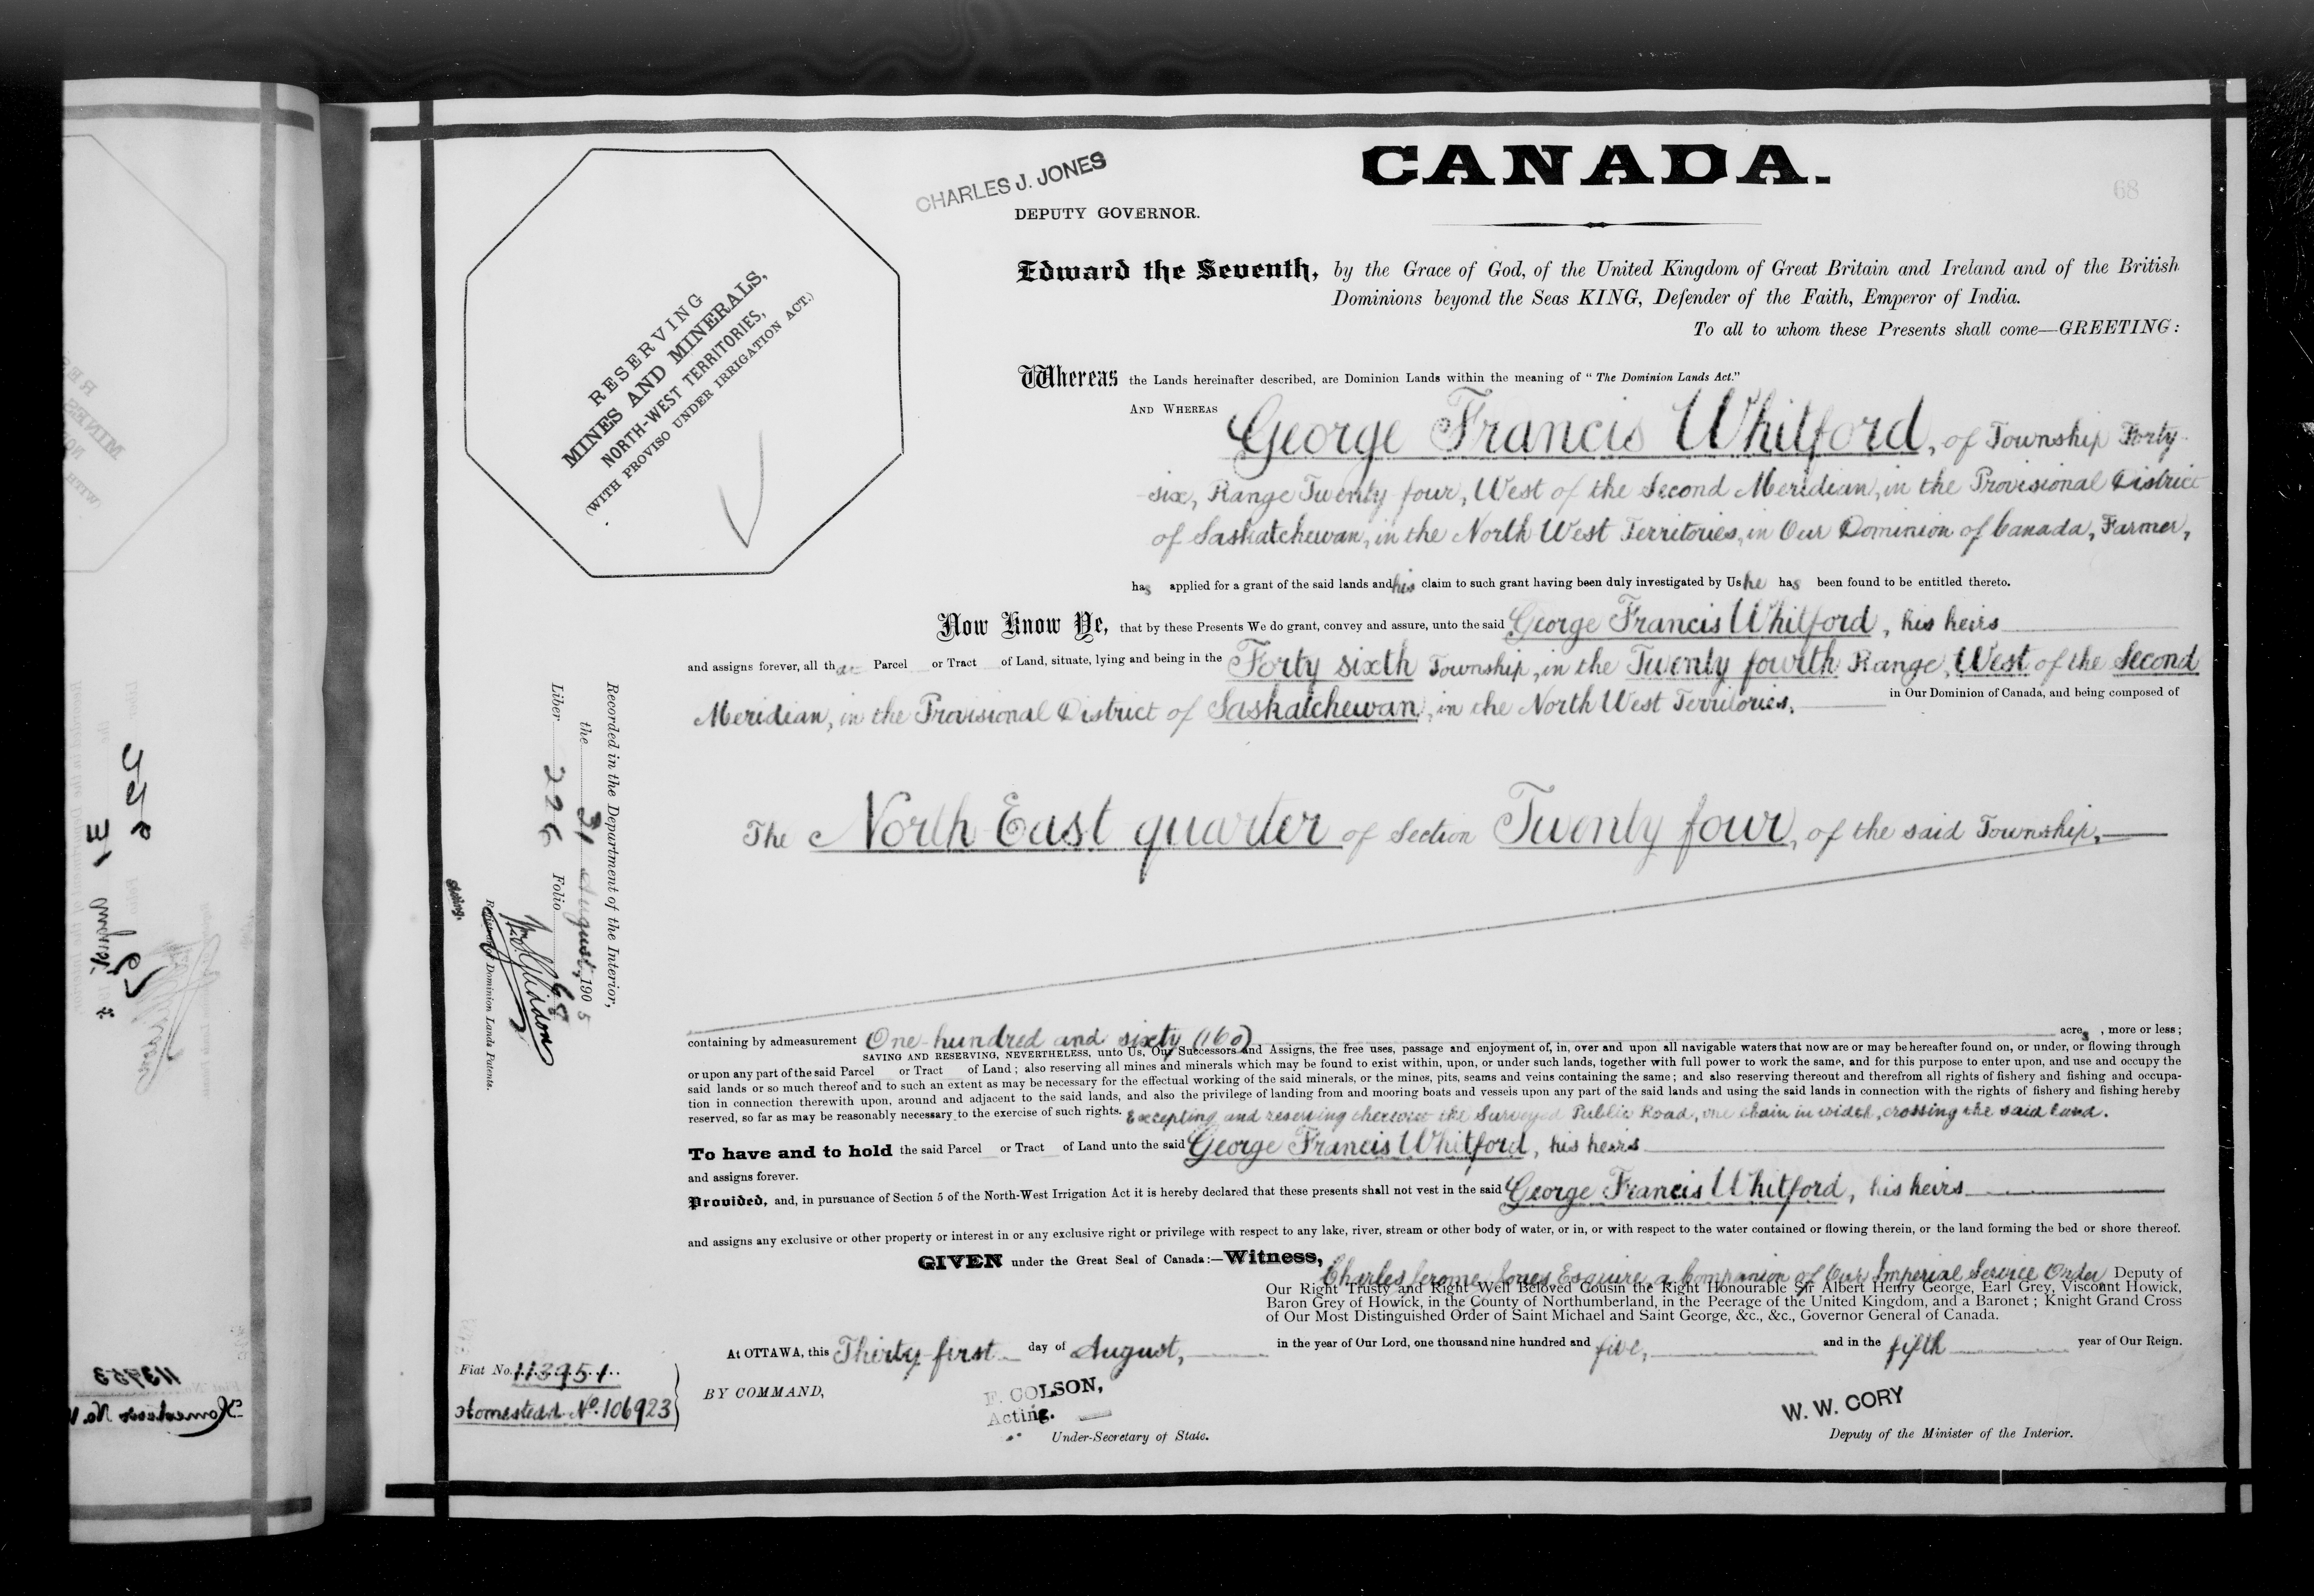 CANADA.
68
CHARLES J. JONES
DEPUTY GOVERNOR.
RESERVING
MINES AND MINERALS,
NORTH-WEST TERRITORIES,
(WITH PROVISO UNDER IRRIGATION ACT.)
Edward the Seventh, by the Grace of God, of the United Kingdom of Great Britain and Ireland and of the British
Dominions beyond the Seas KING, Defender of the Faith, Emperor of India.
To all to whom these Presents shall come—GREETING:
Whereas the Lands hereinafter described, are Dominion Lands within the meaning of "The Dominion Lands Act."
AND WHEREAS George Francis Whitford, of Township Forty
six, Range Twenty four, West of the Second Meridian, in the Provisional District
of Saskatchewan, in the North West Territories, in Our Dominion of Canada, Farmer,
has applied for a grant of the said lands and his claim to such grant having been duly investigated by Us he has been found to be entitled thereto.
Now Know Ye, that by these Presents We do grant, convey and assure, unto the said George Francis Whitford, his heirs
and assigns forever, all that Parcel or Tract of Land, situate, lying and being in the Forty sixth Township, in the Twenty fourth Range, West of the Second
Meridian, in the Provisional District of Saskatchewan, in the North West Territories, in Our Dominion of Canada, and being composed of
The North East quarter of Section Twenty four, of the said Township,
containing by admeasurement One hundred and sixty (160) acres, more or less;
SAVING AND RESERVING, NEVERTHELESS, unto Us, Our Successors and Assigns, the free uses, passage and enjoyment of, in, over and upon all navigable waters that now are or may be hereafter found on, or under, or flowing through
or upon any part of the said Parcel or Tract of Land; also reserving all mines and minerals which may be found to exist within, upon, or under such lands, together with full power to work the same, and for this purpose to enter upon, and use and occupy the
said lands or so much thereof and to such an extent as may be necessary for the effectual working of the said minerals, or the mines, pits, seams and veins containing the same; and also reserving thereout and therefrom all rights of fishery and fishing and occupa-
tion in connection therewith upon, around and adjacent to the said lands, and also the privilege of landing from and mooring boats and vessels upon any part of the said lands and using the said lands in connection with the rights of fishery and fishing hereby
reserved, so far as may be reasonably necessary to the exercise of such rights. Excepting and reserving thereout the Surveyed Public Road, one chain in width, crossing the said land.
To have and to hold the said Parcel or Tract of Land unto the said George Francis Whitford, his heirs
and assigns forever.
Provided, and, in pursuance of Section 5 of the North-West Irrigation Act it is hereby declared that these presents shall not vest in the said George Francis Whitford, his heirs
and assigns any exclusive or other property or interest in or any exclusive right or privilege with respect to any lake, river, stream or other body of water, or in, or with respect to the water contained or flowing therein, or the land forming the bed or shore thereof.
GIVEN under the Great Seal of Canada:—Witness, Charles Jerome Jones Esquire, a Companion of Our Imperial Service Order, Deputy of
Our Right Trusty and Right Well Beloved Cousin the Right Honourable Sir Albert Henry George, Earl Grey, Viscount Howick,
Baron Grey of Howick, in the County of Northumberland, in the Peerage of the United Kingdom, and a Baronet; Knight Grand Cross
of Our Most Distinguished Order of Saint Michael and Saint George, &c., &c., Governor General of Canada.
At OTTAWA, this Thirty first day of August, in the year of Our Lord, one thousand nine hundred and five, and in the fifth year of Our Reign.
BY COMMAND,
F. COLSON,
Acting.
Under-Secretary of State.
W. W. CORY
Deputy of the Minister of the Interior.
Fiat No. 113951
Homestead No. 106923
Recorded in the Department of the Interior,
the 31 August, 1905
Liber 226 Folio 68
Dominion Lands Patents.
Acting.